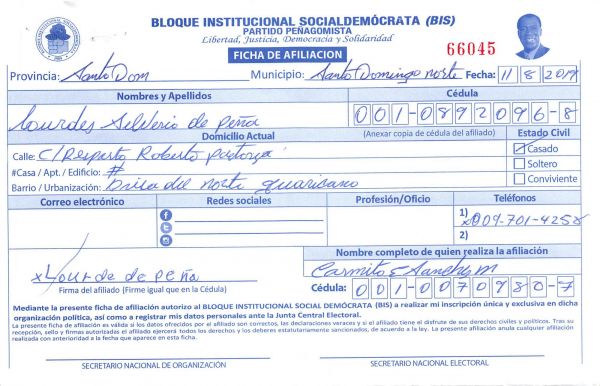 BLOQUE INSTITUCIONAL SOCIALDEMÓCRATA (BIS)
PARTIDO PEÑAGOMISTA
Libertad, Justicia, Democracia y Solidaridad
FICHA DE AFILIACION
66045
Provincia: Santo Dom Municipio: Santo Domingo norte Fecha: 11/8/2019
Nombres y Apellidos
Cédula
Lourdes Silverio de Peña
001-0892096-8
Domicilio Actual
(Anexar copia de cédula del afiliado)
Estado Civil
Calle: C/Resparto Roberto
Casado
#Casa / Apt. / Edificio: #
Soltero
Barrio / Urbanización: brisa del norte guaricano
Conviviente
Correo electrónico
Redes sociales
Profesión/Oficio
Teléfonos
1) 809-701-4258
2)
Nombre completo de quien realiza la afiliación
x Lourde de Peña
Carmito E Sanchez M
Firma del afiliado (Firme igual que en la Cédula)
Cédula: 001-0070980-7
Mediante la presente ficha de afiliación autorizo al BLOQUE INSTITUCIONAL SOCIAL DEMÓCRATA (BIS) a realizar mi inscripción única y exclusiva en dicha
organización política, así como a registrar mis datos personales ante la Junta Central Electoral.
La presente ficha de afiliación es válida si los datos ofrecidos por el afiliado son correctos, las declaraciones veraces y si el afiliado tiene el disfrute de sus derechos civiles y políticos. Tras su
recepción, sello y firmas autorizadas el afiliado ejercerá todos los derechos y los deberes estatutariamente sancionados, de acuerdo a la ley. La presente afiliación anula cualquier afiliación
realizada con anterioridad a la fecha que aparece en esta ficha.
SECRETARIO NACIONAL DE ORGANIZACIÓN
SECRETARIO NACIONAL ELECTORAL